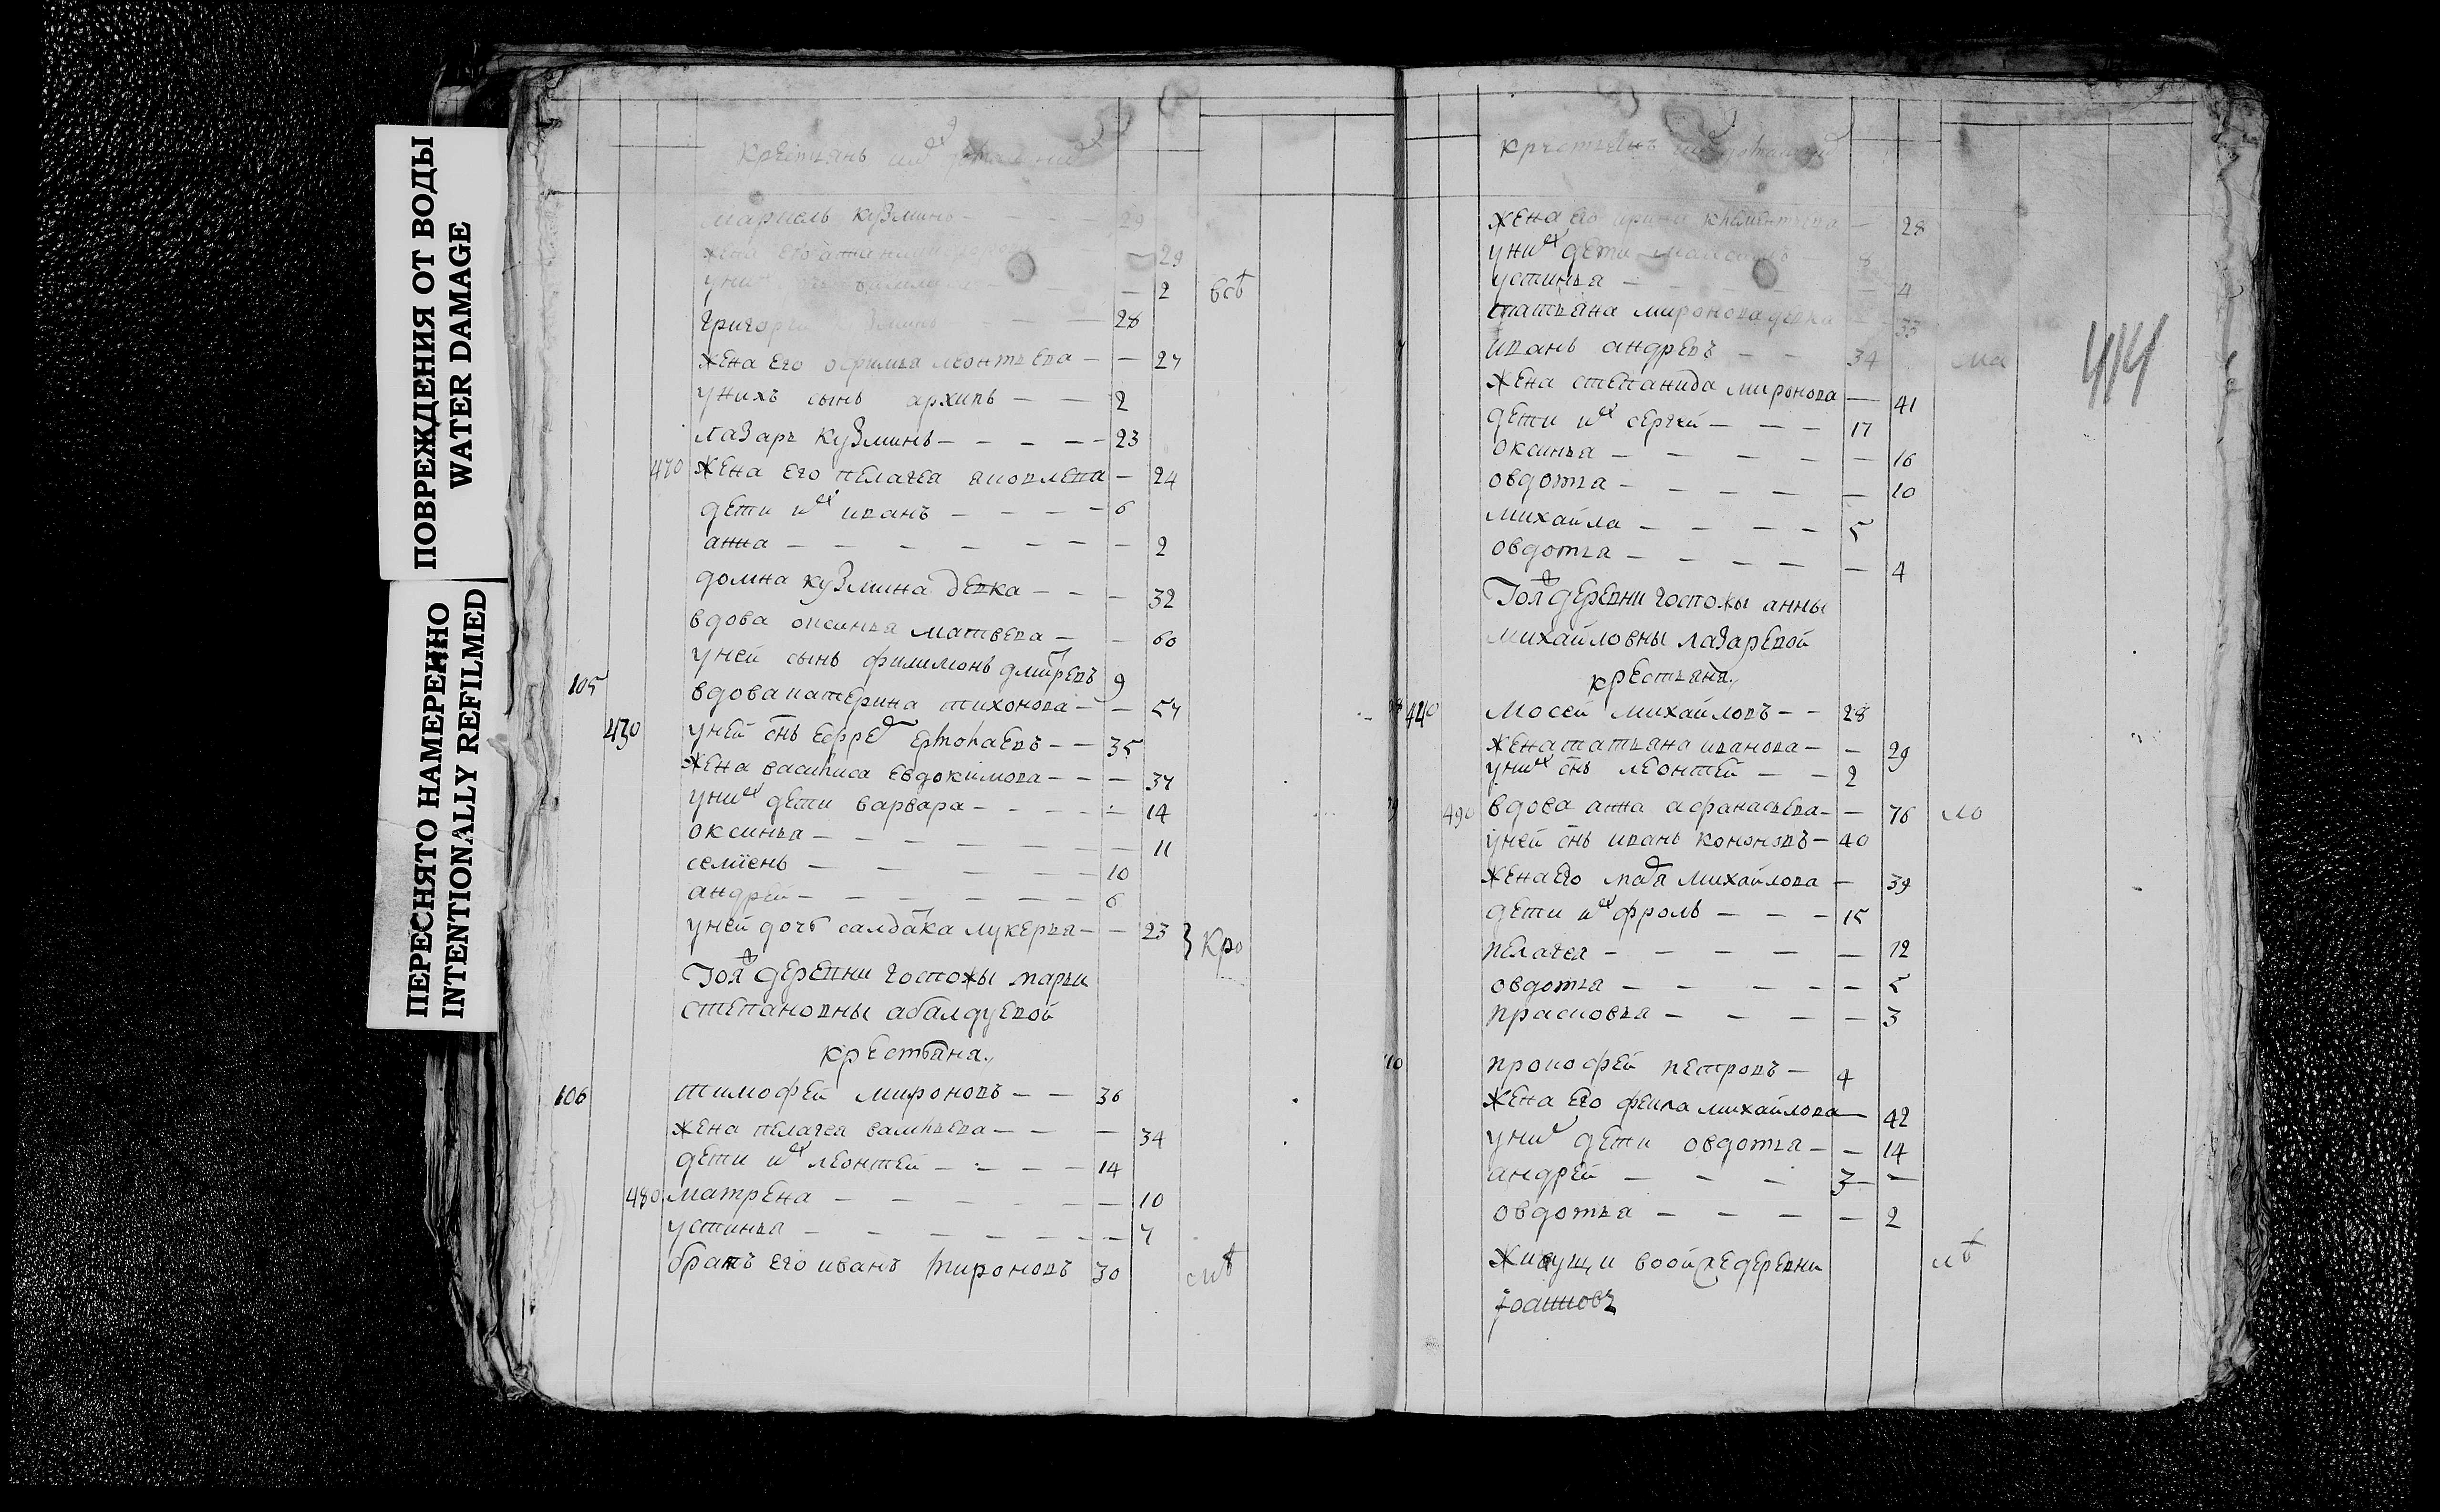 ПОВРЕЖДЕНИЯ ОТ ВОДЫ
WATER DAMAGE
ПЕРЕСНЯТО НАМЕРЕННО
INTENTIONALLY REFILMED
крестьянъ
кузминъ 29
жена его 29
2 всѣ
григорей 28
жена его офимья леонтьева 27
унихъ сынъ архипъ 2
лазаръ кузминъ 23
470 жена его пелагея яковлева 24
дети их иванъ 6
анна 2
домна кузмина девка 32
вдова оксинья матвева 60
уней сынъ филимонъ дмитревъ 9
105 вдова катерина тихонова 57
430 уней снъ ермолаевъ 35
жена василиса евдокимова 37
уних дети варвара 14
оксинья 11
семіенъ 10
андрей 6
уней дочь салдатка лукерья 23 кро
Тоя деревни госпожы марьи
степановны абалдуевой
крестьяна
106 тимофей мироновъ 36
жена пелагея васильева 34
дети их леонтей 14
480 матрена 10
устинья 7
братъ его иванъ мироновъ 30
крестьянъ
жена его арина клементьева 28
уних дети 8
устинья 4
татьяна миронова девка 33
иванъ андревъ 34 ма
жена степанида миронова 41
дети их сергей 17
оксинья 16
овдотья 10
михайла 5
овдотья 4
Тоя деревни госпожы анны
михайловны лазаревой
крестьяна
440 мосей михайловъ 28
жена татьяна иванова 29
уних снъ леонтей 2
490 вдова анна афанасьева 76 мо
уней снъ иванъ кононовъ 40
жена его михайлова 39
дети их фролъ 15
пелагея 12
овдотья 5
прасковья 3
прокофей петровъ 4
жена его фекла михайлова 42
уних дети овдотья 14
андрей 3
овдотья 2
живущи вооной же деревни
414